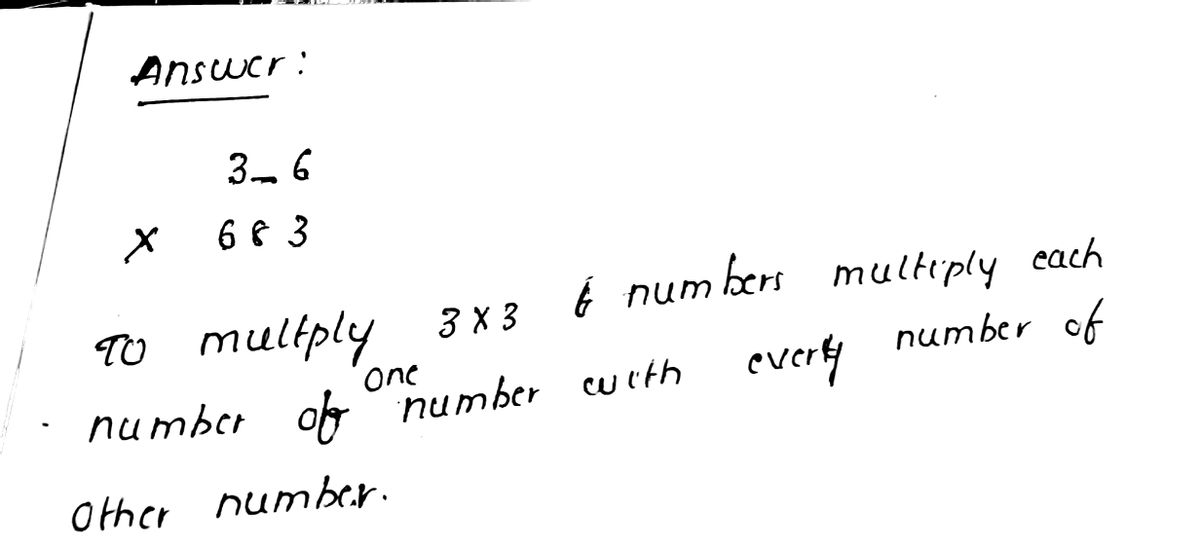 Answer:
3_ 6
x 683
To multply 3x3 numbers multiply each
number of one number with every number of
other number.